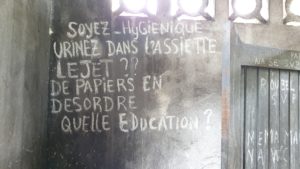 SOYEZ-HyGIENIQUE
URINEZ DANS L'ASSIETTE
LEJET ??
DE PAPIERS EN
DESORDRE
QUELLE EDUCATION ?